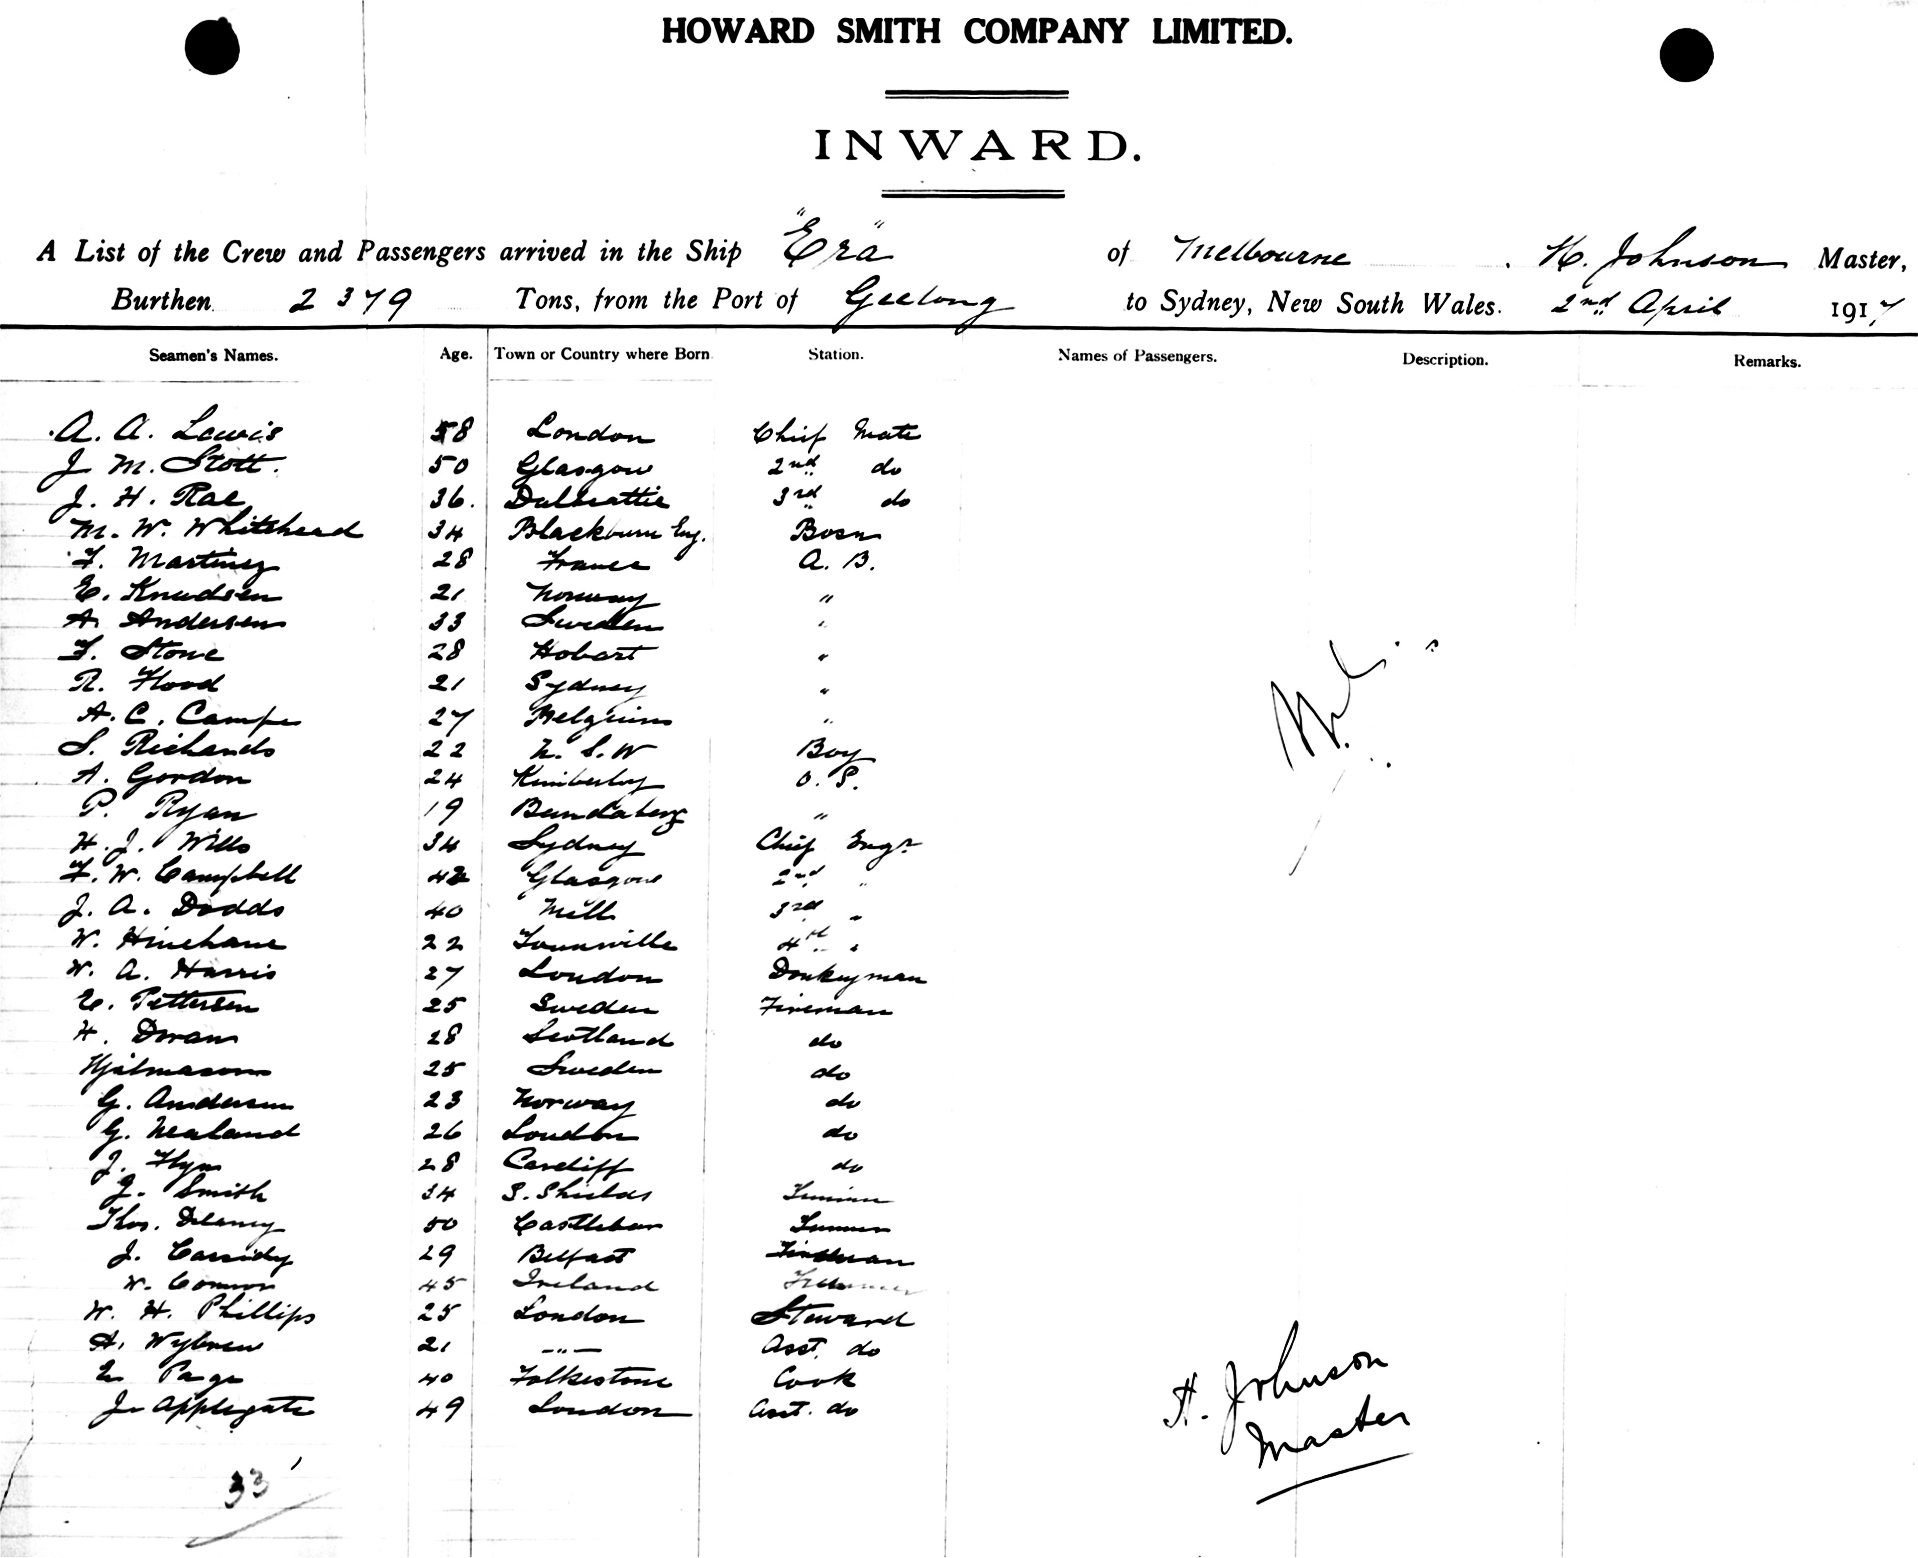 HOWARD SMITH COMPANY LIMITED.
INWARD.
A List of the Crew and Passengers arrived in the Ship "Era" of Melbourne . H. Johnson Master,
Burthen 2379 Tons, from the Port of Geelong to Sydney, New South Wales. 2nd April 1917
Seamen's Names. Age. Town or Country where Born Station. Names of Passengers. Description. Remarks.
A. A. Lewis 58 London Chief Mate
J. M. Stott. 50 Glasgow 2nd do
J. H. Rae 36. Dalbeattie 3rd do
M. W. Whitehead 34 Blackburn Eng. Bosn
F. Martinez 28 France A. B.
E. Knudsen 21 Norway "
A. Andersen 33 Sweden "
F. Stone 28 Hobart "
R. Flood 21 Sydney "
A. C. Campe 27 Belgium "
S. Richards 22 N. S. W Boy
A. Gordon 24 Kimberley O. S.
P. Ryan 19 Bundaberg "
H. J. Wills 34 Sydney Chief Engr
F. W. Campbell 42 Glasgow 2nd "
J. A. Dodds 40 3rd "
W. 22 4th "
W. A. Harris 27 London Donkeyman
E. Pettersen 25 Sweden Fireman
H. Doran 28 Scotland do
Hjalmarson 25 Sweden do
G. Andersen 23 Norway do
G. Nealand 26 London do
J. Flyn 28 Cardiff do
J. Smith 34 S. Shields
Thos. Delaney 50 Castlebar
J. Cassidy 29 Belfast Fireman
W. Connor 45 Ireland
W. H. Phillips 25 London Steward
A. Wybrew 21 —"— Asst. do
E. Page 40 Folkestone Cook
J. Applegate 49 London Asst. do
H. Johnson
Master
33